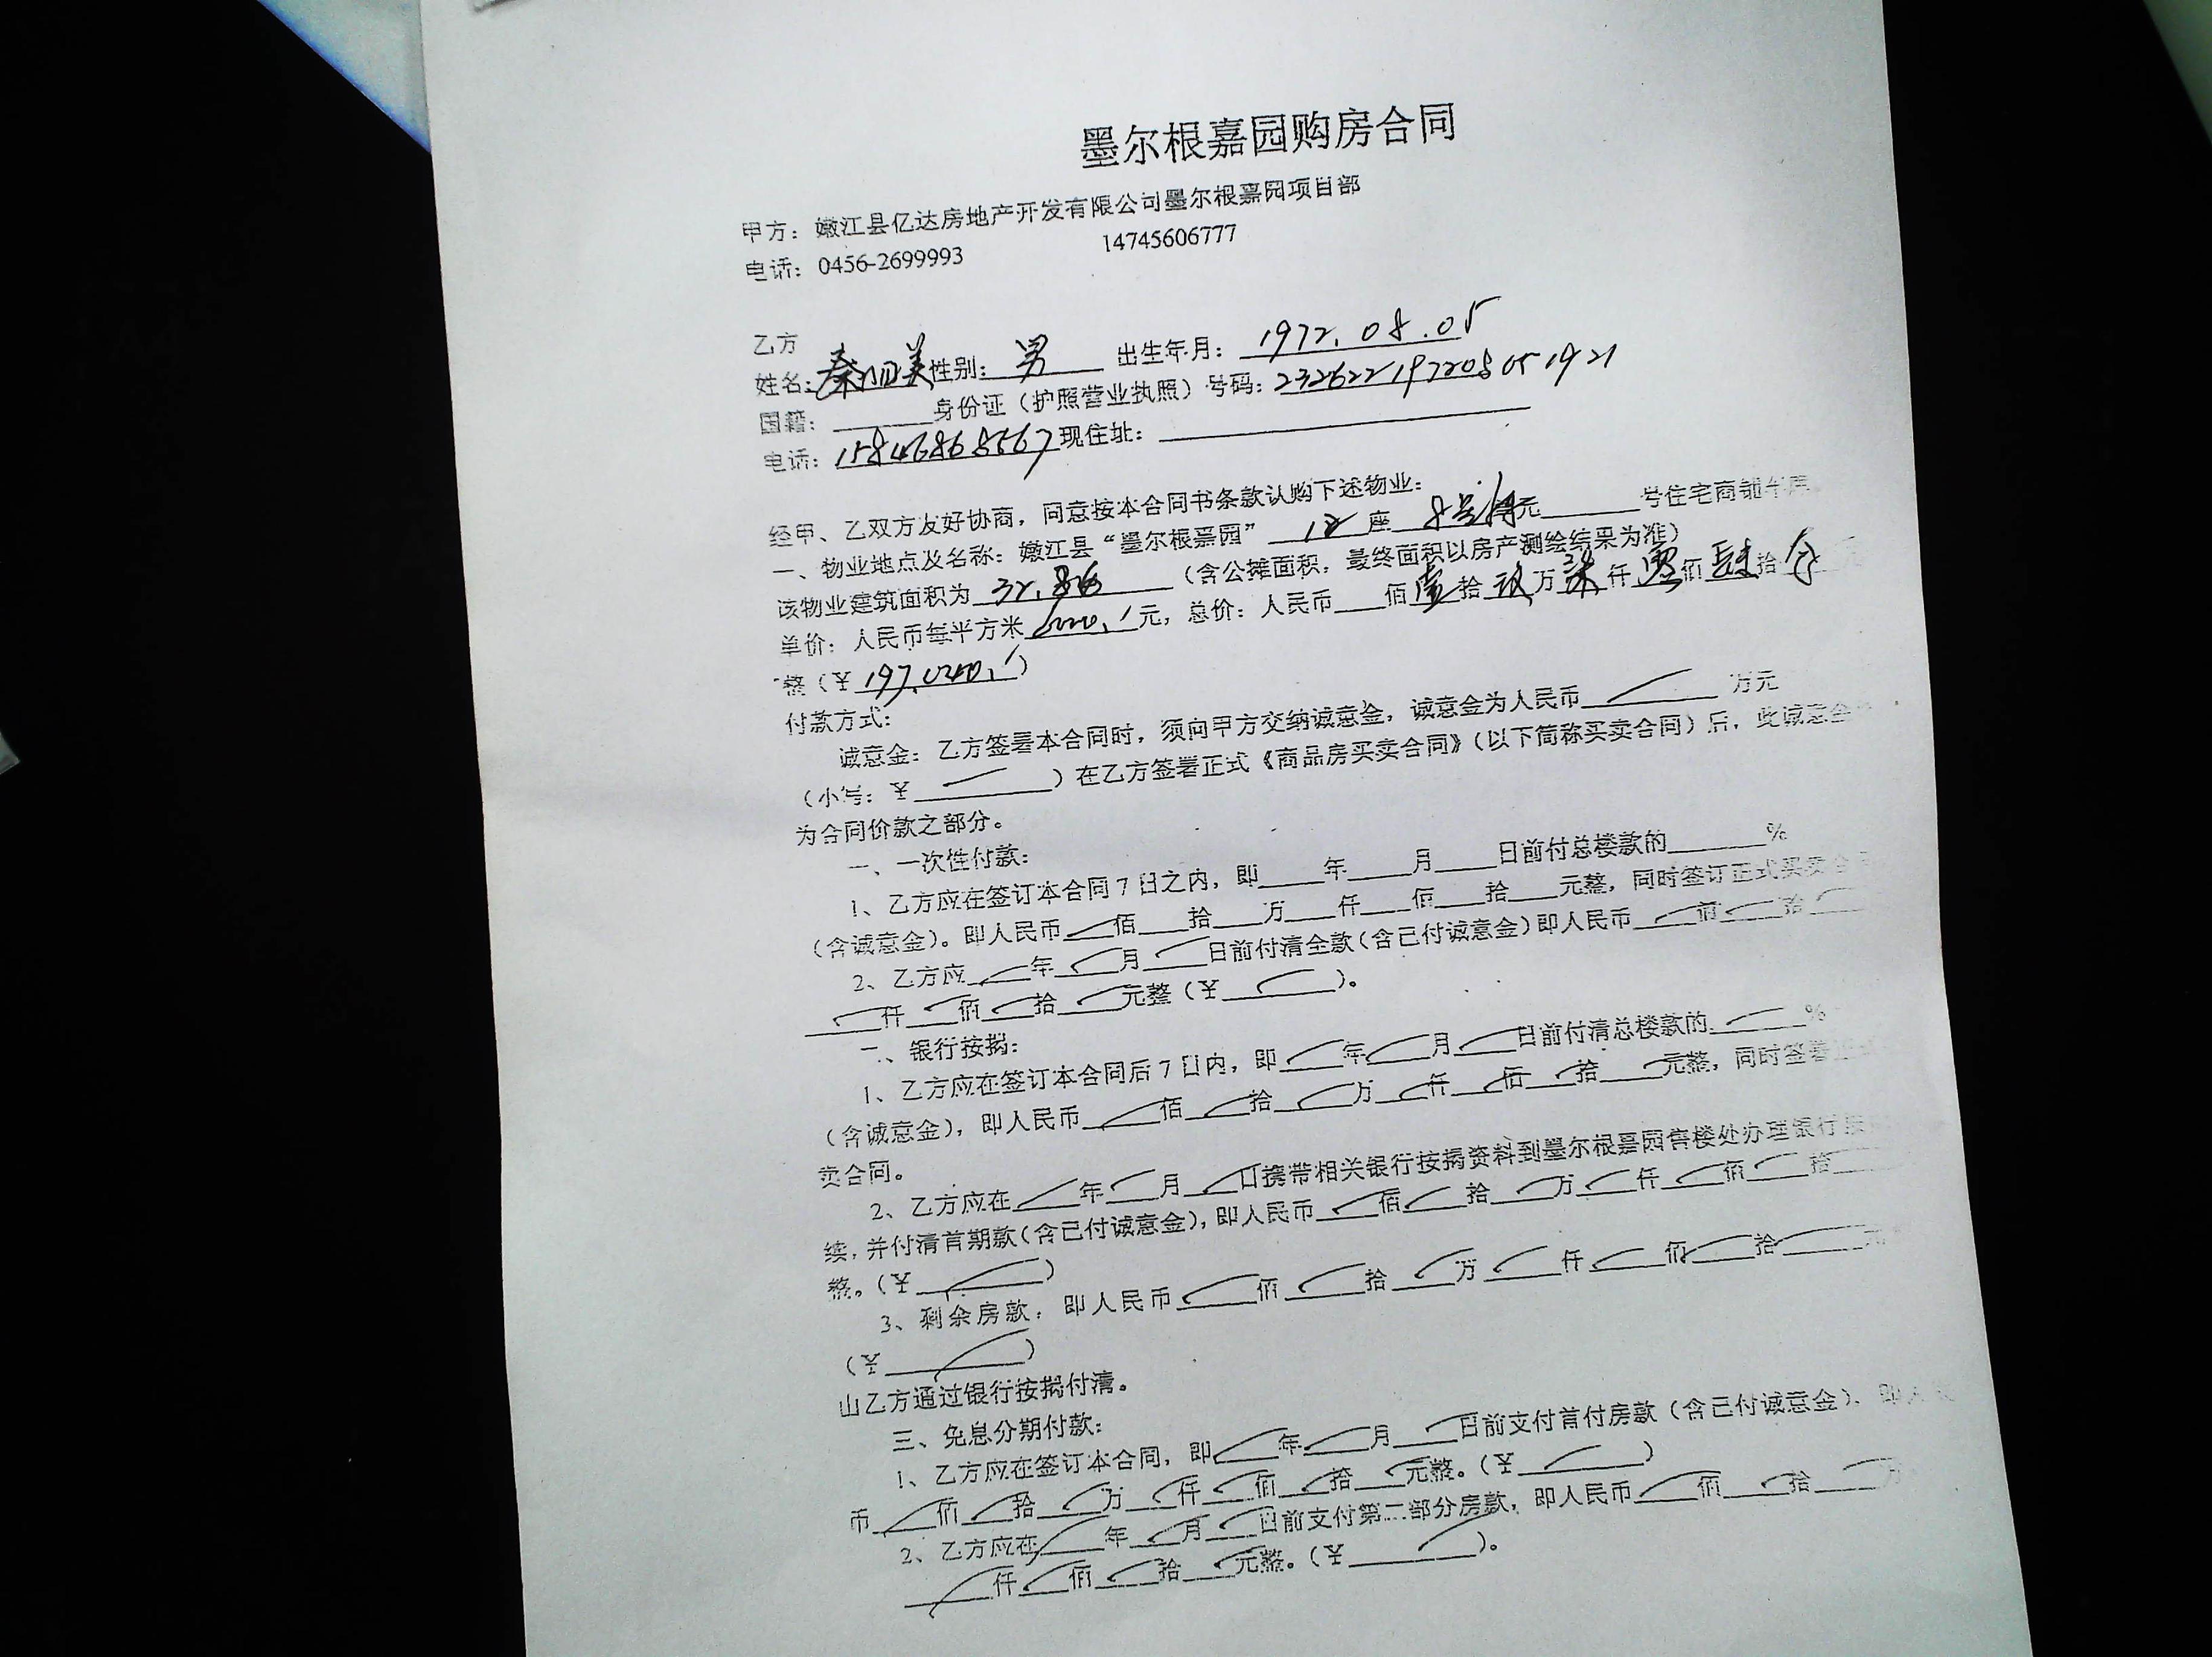 墨尔根嘉园购房合同
甲方：嫩江县亿达房地产开发有限公司墨尔根嘉园项目部
电话：0456-2699993 14745606777
乙方
姓名：秦丽美 性别：男 出生年月：1972.08.05
国籍：______身份证（护照营业执照）号码：232622197208051921
电话：15846868567 现住址：
经甲、乙双方友好协商，同意按本合同书条款认购下述物业：
一、物业地点及名称：嫩江县“墨尔根嘉园” 12 座 8号 元______号住宅商铺车库
该物业建筑面积为 32.84 （含公摊面积，最终面积以房产测绘结果为准）
单价：人民币每平方米 6000.1 元，总价：人民币___佰壹拾玖万柒仟零佰肆拾令
整（￥197,040.1）
付款方式：
诚意金：乙方签署本合同时，须向甲方交纳诚意金，诚意金为人民币______万元
（小写：￥______）在乙方签署正式《商品房买卖合同》（以下简称买卖合同）后，此诚意金
为合同价款之部分。
一、一次性付款：
1、乙方应在签订本合同7日之内，即___年___月___日前付总楼款的_____%
（含诚意金）。即人民币___佰___拾___万___仟___佰___拾___元整，同时签订正式买卖合同
2、乙方应___年___月___日前付清全款（含已付诚意金）即人民币___佰___拾___
___仟___佰___拾___元整（￥______）。
二、银行按揭：
1、乙方应在签订本合同后7日内，即___年___月___日前付清总楼款的_____%
（含诚意金），即人民币___佰___拾___万___仟___佰___拾___元整，同时签署正式
卖合同。
2、乙方应在___年___月___日携带相关银行按揭资料到墨尔根嘉园售楼处办理银行按
续，并付清首期款（含已付诚意金），即人民币___佰___拾___万___仟___佰___拾___
整。（￥______）
3、剩余房款，即人民币___佰___拾___万___仟___佰___拾___元
（￥______）
由乙方通过银行按揭付清。
三、免息分期付款：
1、乙方应在签订本合同，即___年___月___日前支付首付房款（含已付诚意金），即人民
币___佰___拾___万___仟___佰___拾___元整。（￥______）
2、乙方应在___年___月___日前支付第二部分房款，即人民币___佰___拾___万
___仟___佰___拾___元整。（￥______）。